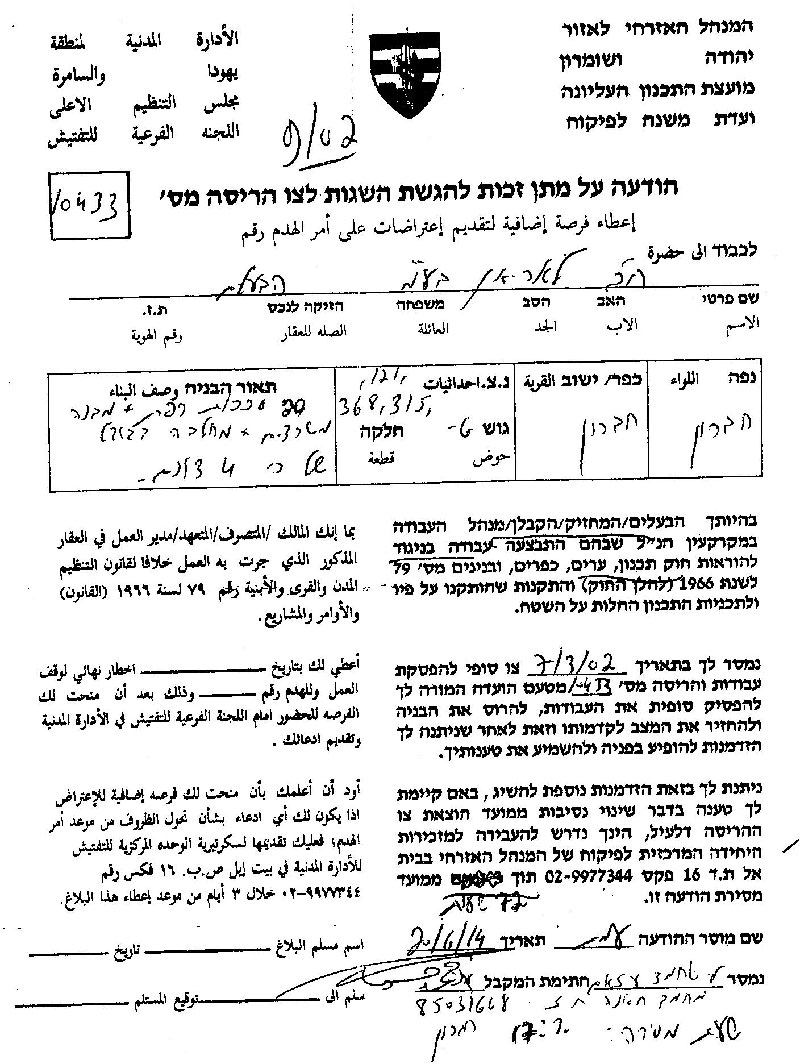 המנהל האזרחי לאזור
יהודה ושומרון
מועצת התכנון העליונה
ועדת משנה לפיקוח
الأدارة المدنية لمنطقة
يهودا والسامرة
مجلس التنظيم الاعلى
اللجنه الفرعية للتفتيش
9/02
הודעה על מתן זכות להגשת השגות לצו הריסה מס'
10433
إعطاء فرصة إضافية لتقديم إعتراضات على أمر الهدم رقم
לכבוד الى حضرة
בע"מ הבעלים
שם פרטי האב הסב משפחה הזיקה לנכס ת.ז.
الاسم الاب الجد العائلة الصله للعقار رقم الهوية
נפה اللواء
חברון
כפר/ ישוב القرية
חברון
נ.צ. احداثيات
368,315,
גוש חלקה
حوض قطعة
תאור הבניה وصف البناء
סככות רפת + מבנה
משרדים + מחלבה בגודל
של כ- 4 דונם.
בהיותך הבעלים/המחזיק/הקבלן/מנהל העבודה
במקרקעין הנ"ל שבהם התבצעה עבודה בניגוד
להוראות חוק תכנון, ערים, כפרים, ובנינים מס' 79
לשנת 1966 (להלן החוק) והתקנות שהותקנו על פיו
ולתכניות התכנון החלות על השטח.
بما إنك المالك /المتصرف/المتعهد/مدير العمل في العقار
المذكور الذي جرت به العمل خلافا لقانون التنظيم
المدن والقرى والأبنية رقم ٧٩ لسنة ١٩٦٦ (القانون)
والأوامر والمشاريع.
נמסר לך בתאריך 7/3/02 צו סופי להפסקת
עבודות והריסה מס' מטעם הועדה המורה לך
להפסיק סופית את העבודות, להרוס את הבניה
ולהחזיר את המצב לקדמותו וזאת לאחר שניתנה לך
הזדמנות להופיע בפניה ולהשמיע את טענותיך.
أعطي لك بتاريخ اخطار نهائي لوقف
العمل وللهدم رقم وذلك بعد أن منحت لك
الفرصه للحضور امام اللجنة الفرعية للتفتيش في الأدارة المدنية
وتقديم ادعائك.
ניתנת לך בזאת הזדמנות נוספת להשיג, באם קיימת
לך טענה בדבר שינוי נסיבות ממועד הוצאת צו
ההריסה דלעיל, הינך נדרש להעבירה למזכירות
היחידה המרכזית לפיקוח של המנהל האזרחי בבית
אל ת.ד 16 פקס 02-9977344 תוך ממועד
מסירת הודעה זו.
72 שעות
أود أن أعلمك بأن منحت لك فرصه إضافية للإعتراض
اذا يكون لك أي ادعاء بشأن تحول الظروف من موعد أمر
الهدم؛ فعليك تقديمها لسكرتيرية الوحده المركزية للتفتيش
للأدارة المدنية في بيت إيل ص.ب. ١٦ فكس رقم
٠٢-٩٩٧٧٣٤٤ خلال ٣ أيام من موعد إعطاء هذا البلاغ.
שם מוסר ההודעה תאריך 20/6/14
اسم مسلم البلاغ تاريخ
נמסר חתימת המקבל
سلم الى توقيع المستلم
שעת מסירה: